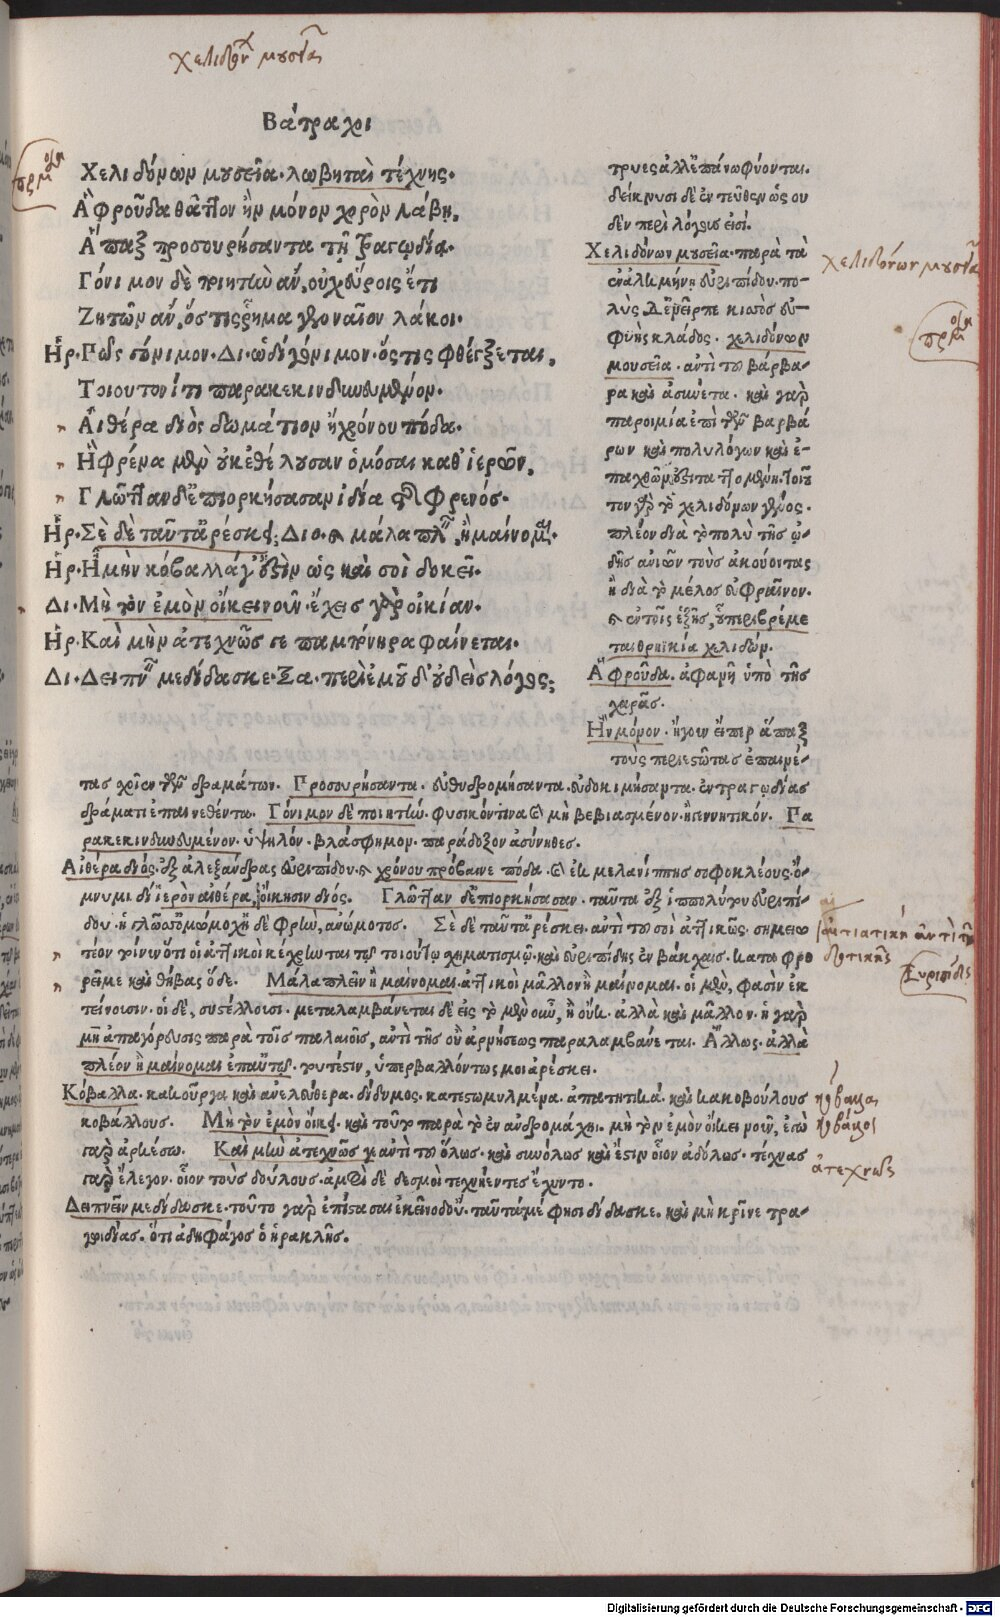 χελιδόνων μουσεῖα
Βάτραχοι
Χελιδόνων μουσεῖα. λωβηταὶ τέχνης.
Ἃ φροῦδα θᾶττον ἢν μόνον χορὸν λάβῃ,
Ἅπαξ προσουρήσαντα τῇ τραγῳδίᾳ.
Γόνιμον δὲ ποιητὴν ἂν, οὐχ εὕροις ἔτι
Ζητῶν ἂν, ὅστις ῥῆμα γενναῖον λάκοι.
Ἡρ. Πῶς γόνιμον. Δι. ὡδὶ γόνιμον. ὅστις φθέγξεται,
Τοιουτονί τι παρακεκινδυνευμένον.
Αἰθέρα διὸς δωμάτιον ἢ χρόνου πόδα.
Ἢ φρένα μὲν οὐκ ἐθέλουσαν ὀμόσαι καθ' ἱερῶν,
Γλῶτταν δ' ἐπιορκήσασαν ἰδίᾳ τῆς φρενός.
Ἡρ. Σὲ δὲ ταῦτ' ἀρέσκει; Δι. καὶ μάλα πλεῖν ἢ μαίνομαι.
Ἡρ. Ἦ μὴν κόβαλλά γ' ἐστὶν ὡς καὶ σοὶ δοκεῖ.
Δι. Μὴ τὸν ἐμὸν οἴκει νοῦν. ἔχεις γὰρ οἰκίαν.
Ἡρ. Καὶ μὴν ἀτεχνῶς γε παμπόνηρα φαίνεται.
Δι. Δειπνεῖν με δίδασκε. Ξα. περὶ ἐμοῦ δ' οὐδεὶς λόγος;
τρυες ἀλλ' ἐπάνω φύονται.
δείκνυσι δὲ ἐντεῦθεν ὡς οὐ
δὲν περὶ λόγου εἰσί.
Χελιδόνων μουσεῖα. παρὰ τὰ
ἐν ἀλκμήνῃ εὐριπίδου. πο-
λὺς δ' ἀνεῖρπε κισσὸς εὐ-
φυὴς κλάδος. χελιδόνων
μουσεῖα. ἀντὶ τοῦ βάρβα-
ρα καὶ ἀσύνετα. καὶ γὰρ
παροιμία ἐπὶ τῶν βαρβά
ρων καὶ πολυλόγων καὶ ἐ-
τον γὰρ τὸ χελιδόνων γένος.
πλέον διὰ τὸ πολὺ τῆς ᾠ-
δῆς ἀνιῶν τοὺς ἀκούοντας
ἢ διὰ τὸ μέλος εὐφραῖνον.
καὶ ἐν τοῖς ἑξῆς, ὑπεριβρέμε
ται θρῃκία χελιδών.
Ἃ φροῦδα. ἀφανῆ ὑπὸ τῆς
χαρᾶς.
Ἢν μόνον. ἤγουν εἴπερ ἅπαξ
τοὺς περιεστῶτας ἐπαινέ-
τας χωρὶς τῶν δραμάτων. Προσουρήσαντα. εὐθυδρομήσαντα. εὐδοκιμήσαντα. ἐν τραγῳδίας
δράματι ἐπαινεθέντα. Γόνιμον δὲ ποιητήν. φυσικόν τινα καὶ μὴ βεβιασμένον. ἢ γεννητικόν. Πα
ρακεκινδυνευμένον. ὑψηλόν. βλάσφημον. παράδοξον ἀσύνηθες.
Αἰθέρα διός. ἐξ ἀλεξάνδρας εὐριπίδου. καὶ χρόνου πρόβαινε πόδα. καὶ ἐκ μελανίππης σοφοκλέους. ὄ-
μνυμι δ' ἱερὸν αἰθέρα, οἴκησιν διός. Γλῶτταν δ' ἐπιορκήσασαν. ταῦτα ἐξ ἱππολύτου εὐριπί-
δου. ἡ γλῶσσ' ὀμώμοχ' ἡ δὲ φρὴν, ἀνώμοτος. Σὲ δὲ ταῦτ' ἀρέσκει. ἀντὶ τοῦ σοὶ ἀττικῶς. σημειω
τέον γοῦν ὅτι οἱ ἀττικοὶ κέχρηνται τῷ τοιούτῳ σχηματισμῷ. καὶ εὐριπίδης ἐν βάκχαις. καταφρο
ρεῖ με καὶ θήβας ὅδε. Μάλα πλεῖν ἢ μαίνομαι. ἀττικοὶ μᾶλλον ἢ μαίνομαι. οἱ μὲν, φασὶν ἐκ
τείνουσιν. οἱ δὲ, συστέλλουσι. μεταλαμβάνεται δὲ εἰς τὸ μὲν οὖν, ἢ οὐκ. ἀλλὰ καὶ μᾶλλον. ἡ γὰρ
μὴ ἀπαγόρευσις παρὰ τοῖς παλαιοῖς, ἀντὶ τῆς οὐ ἀρνήσεως παραλαμβάνεται. Ἄλλως. ἀλλὰ
πλέον ἢ μαίνομαι ἐπ' αὐτοῖς. τουτέστιν, ὑπερβαλλόντως μοι ἀρέσκει.
Κόβαλλα. κακοῦργα καὶ ἀνελεύθερα. δίδυμος. κατεστωμυλμένα. ἀπατητικά. καὶ κακοβούλους
κοβάλλους. Μὴ τὸν ἐμὸν οἴκει. καὶ τοῦτο παρὰ τὸ ἐν ἀνδρομάχῃ. μὴ τὸν ἐμὸν οἴκει νοῦν, ἐγὼ
γὰρ ἀρκέσω. Καὶ μὴν ἀτεχνῶς. ἀντὶ τοῦ ὅλως. καὶ συνόλως καὶ ἔστιν οἷον ἀδόλως. τέχνας
γὰρ ἔλεγον. οἷον τοὺς δούλους. ἀμφὶ δὲ δεσμοὶ τεχνήεντες ἔχυντο.
Δειπνεῖν με δίδασκε. τοῦτο γὰρ ἐπίστασαι ἐκεῖνο δ' οὔ. ταῦτά μέ φησι δίδασκε. καὶ μὴ κρῖνε τρα-
γῳδίας. ὅτι ἀδηφάγος ὁ ἡρακλῆς.
χελιδόνων μουσεῖα
αἰτιατικὴ ἀντὶ τῆς
δοτικῆς
Εὐριπίδης
κόβαλα
κόβαλοι
ἀτεχνῶς
Digitalisierung gefördert durch die Deutsche Forschungsgemeinschaft - DFG